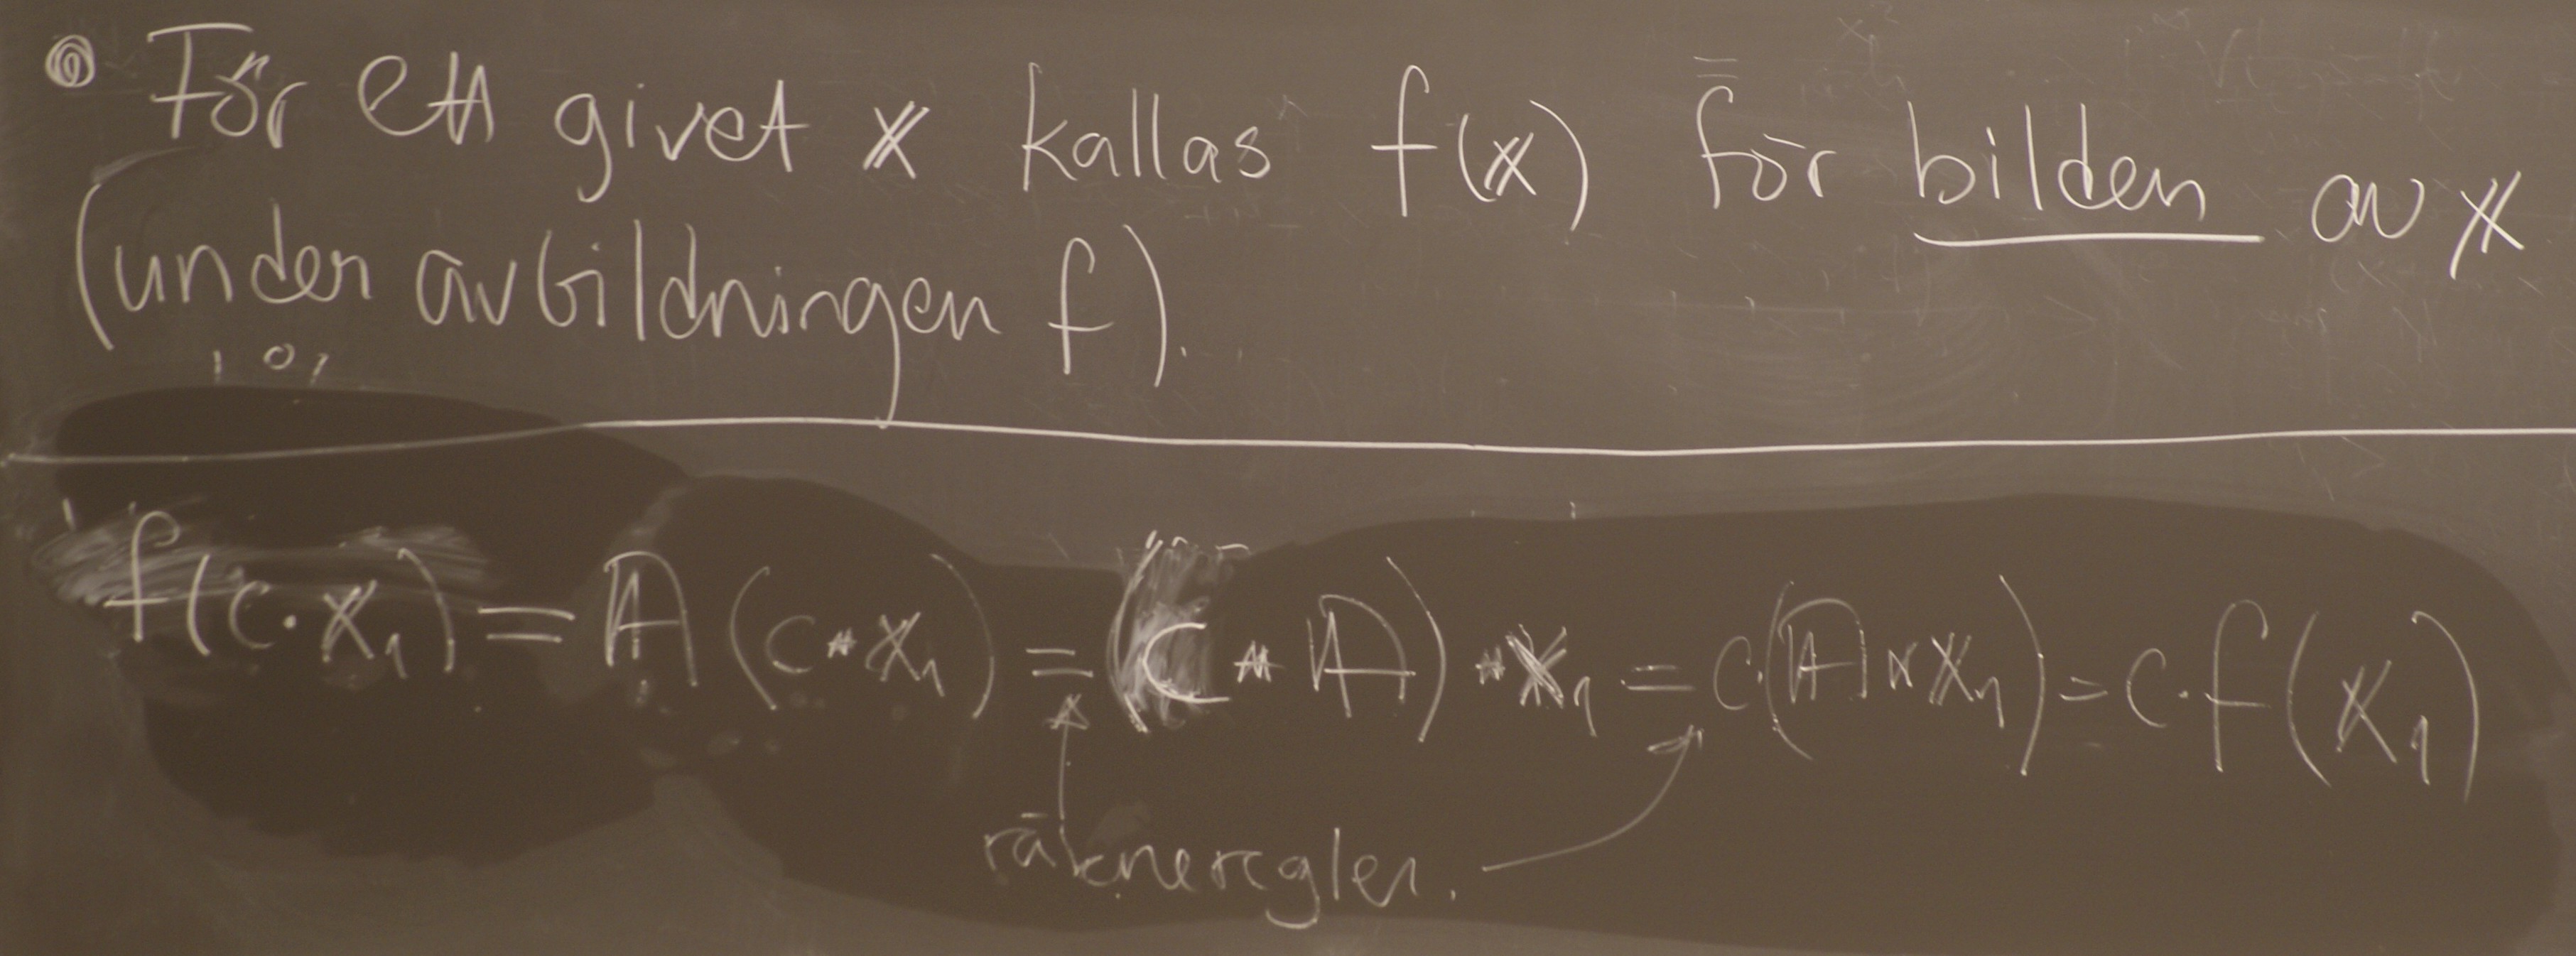 För ett givet x kallas f(x) för bilden av x
(under avbildningen f).
f(c·x₁) = A(c·x₁) = (c·A)·x₁ = c·(A·x₁) = c·f(x₁)
räkneregler.